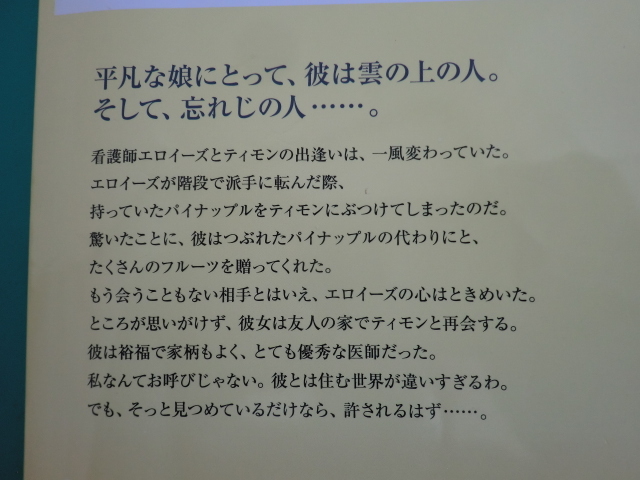 平凡な娘にとって、彼は雲の上の人。
そして、忘れじの人……。
看護師エロイーズとティモンの出逢いは、一風変わっていた。
エロイーズが階段で派手に転んだ際、
持っていたパイナップルをティモンにぶつけてしまったのだ。
驚いたことに、彼はつぶれたパイナップルの代わりにと、
たくさんのフルーツを贈ってくれた。
もう会うこともない相手とはいえ、エロイーズの心はときめいた。
ところが思いがけず、彼女は友人の家でティモンと再会する。
彼は裕福で家柄もよく、とても優秀な医師だった。
私なんてお呼びじゃない。彼とは住む世界が違いすぎるわ。
でも、そっと見つめているだけなら、許されるはず……。